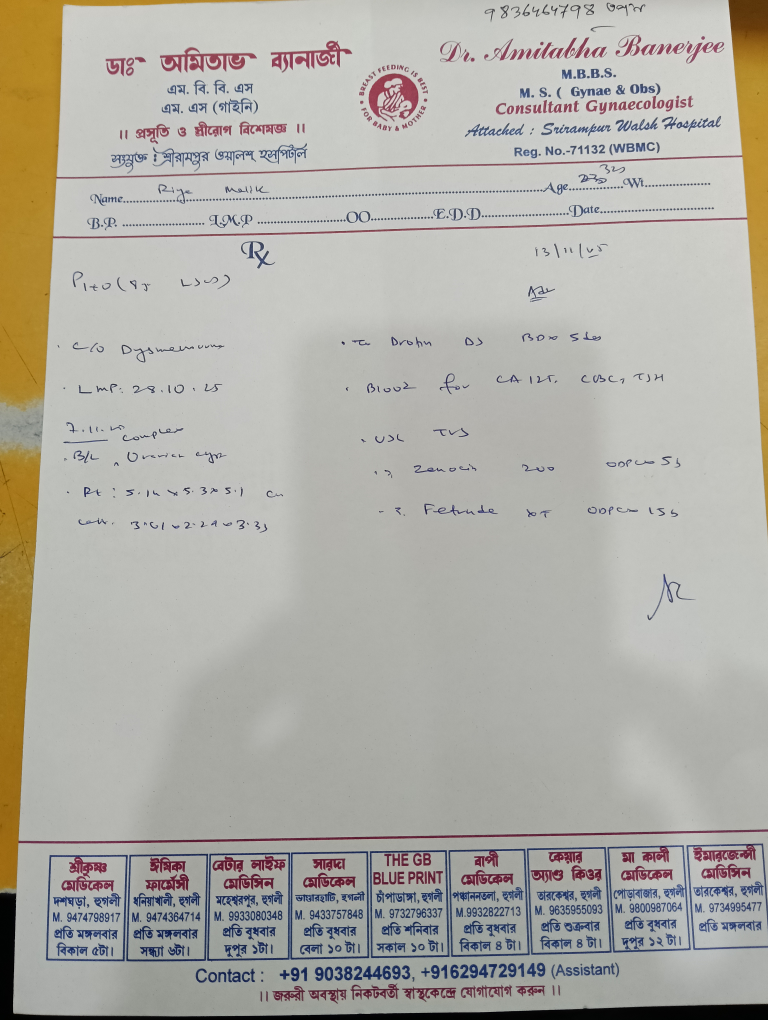 9836464798
ডাঃ অমিতাভ ব্যানার্জী
এম. বি. বি. এস
এম. এস (গাইনি)
।। প্রসূতি ও স্ত্রীরোগ বিশেষজ্ঞ ।।
সংযুক্ত : শ্রীরামপুর ওয়ালশ হসপিটাল
BREAST FEEDING IS BEST
FOR BABY & MOTHER
Dr. Amitabha Banerjee
M.B.B.S.
M. S. ( Gynae & Obs)
Consultant Gynaecologist
Attached : Srirampur Walsh Hospital
Reg. No.-71132 (WBMC)
Name Riya Malik Age Wt
B.P. L.M.P OO E.D.D. Date
Rx
13/11/25
P1+0 (
Adv
C/O Dysmenorrhoea
LMP: 28.10.25
7.11.25
complex
B/L Ovarian cyst
Rt : 5.14 x 5.3 x 5.1 cm
Drotin DS BD x 5 days
Blood for CA 125, CBC, TSH
USG TVS
Zanocin 200 ODPC x 5
Fetrude XT ODPC x 15
শ্রীকৃষ্ণ মেডিকেল
দশঘড়া, হুগলী
M. 9474798917
প্রতি মঙ্গলবার
বিকাল ৫টা।
ঈষিকা ফার্মেসী
ধনিয়াখালী, হুগলী
M. 9474364714
প্রতি মঙ্গলবার
সন্ধ্যা ৬টা।
বেটার লাইফ মেডিসিন
মহেশ্বরপুর, হুগলী
M. 9933080348
প্রতি বুধবার
দুপুর ১টা।
সারদা মেডিকেল
হুগলী
M. 9433757848
প্রতি বুধবার
বেলা ১০ টা।
THE GB BLUE PRINT
চাঁপাডাঙ্গা, হুগলী
M. 9732796337
প্রতি শনিবার
সকাল ১০ টা।
বাণী মেডিকেল
পঞ্চাননতলা, হুগলী
M.9932822713
প্রতি বুধবার
বিকাল ৪ টা।
কেয়ার অ্যাণ্ড কিওর
তারকেশ্বর, হুগলী
M. 9635955093
প্রতি শুক্রবার
বিকাল ৪ টা।
মা কালী মেডিকেল
পোড়াবাজার, হুগলী
M. 9800987064
প্রতি বুধবার
দুপুর ১২ টা।
ইমারজেন্সী মেডিসিন
তারকেশ্বর, হুগলী
M. 9734995477
প্রতি মঙ্গলবার
Contact : +91 9038244693, +916294729149 (Assistant)
।। জরুরী অবস্থায় নিকটবর্তী স্বাস্থ্যকেন্দ্রে যোগাযোগ করুন ।।